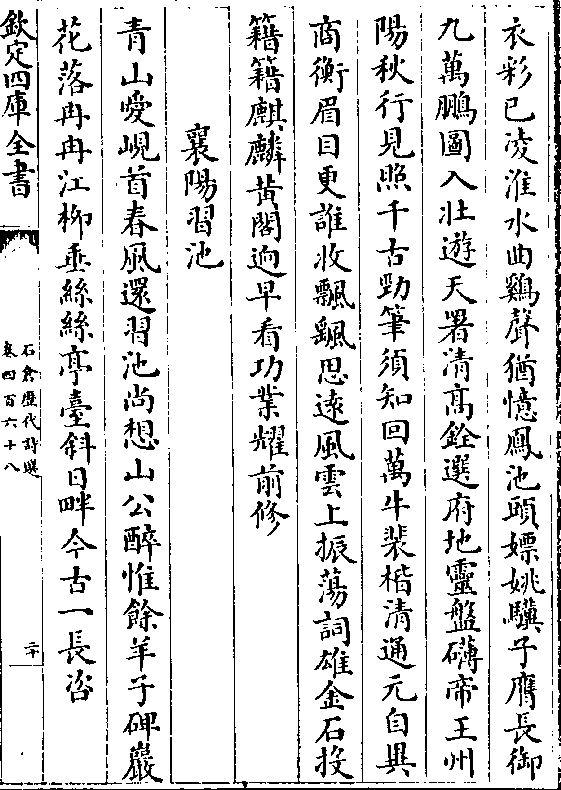 衣彩已凌淮水曲鷄聲猶憶鳳池頭嫖姚驥子膺長御
九萬鵬圖入壯遊天署清髙銓選府地靈盤礴帝王州
陽秋行見照千古勁筆須知回萬牛裴楷清通元自異
商衡眉目更誰收飄飄思遠風雲上振蕩詞雄金石投
籍籍麒麟黄閣逈早看功業耀前修
襄陽習池
青山愛峴首春風還習池尚想山公醉惟餘羊子碑巖
花落冉冉江柳垂絲絲亭臺斜日畔今古一長咨
欽定四庫全書
石倉歷代詩選
卷四百六十八
二十